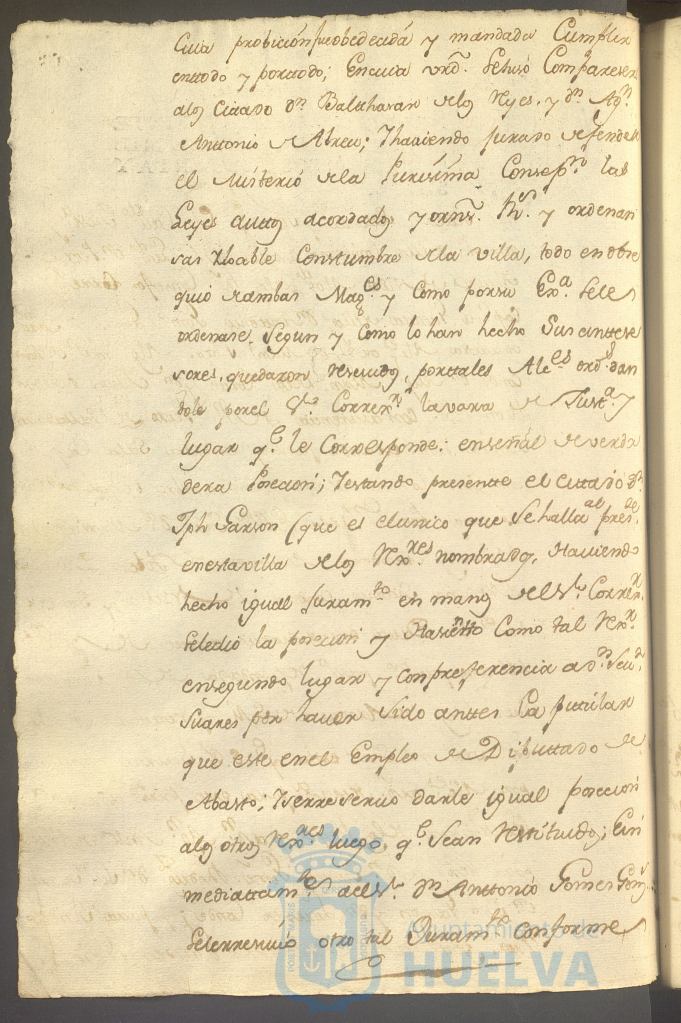 Cuia probicion fue obedecida y mandada Cumplir
enttodo y porttodo; En cuia vrd. se hiso Compareser
a los Cittado Dn. Balthasar de los Reyes, y Dn. Agn.
Anttonio de Abreu; Y haviendo jurado defender
el Misterio de la Purissima Consepn. las
Leyes auttos acordados y orns. Rs. y ordenan
sas Loable Constumbre de la villa, todo en obse
quio de ambas Mages. y Como por su Exa. se les
ordenare. Segun y Como lo han hecho Sus anttese
sores, quedaron resevidos, por tales Alces. ords. dan
dole por el Sr. Correxr. la vara de Justa. y
lugar qe. le Corresponde; en señal de verda
dera Posecion; Y estando presente el Cittado Dn.
Jph Garson (que es el unico que se halla al presте.
en esta villa de los Rexres. nombrados, Haviendo
hecho igual Juramto. en manos del Sr. Correxr.
se le dio la posecion y Hasientto Como tal Rexr.
en segundo lugar y con preferencia a Dn.
Suares por haver Sido anttes Capitular
que este en el Empleo de Diputtado de
Abasto; Y se reservo darle igual posecion
a los otros Rexres. luego qe. Sean Restituidos; E in
mediattamte. a el Sr. Dn. Anttonio Gomes
se le resevio otro tal Juramto. conforme
Ayuntamiento de
HUELVA